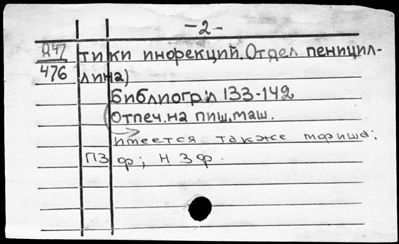 -2-
Д47 тики инфекций. Отдел пеницил-
476 лина)
Библиогр:л 133-142
(Отпеч. на пиш. маш.
имеется также мфиша:
ПЗф; НЗф.